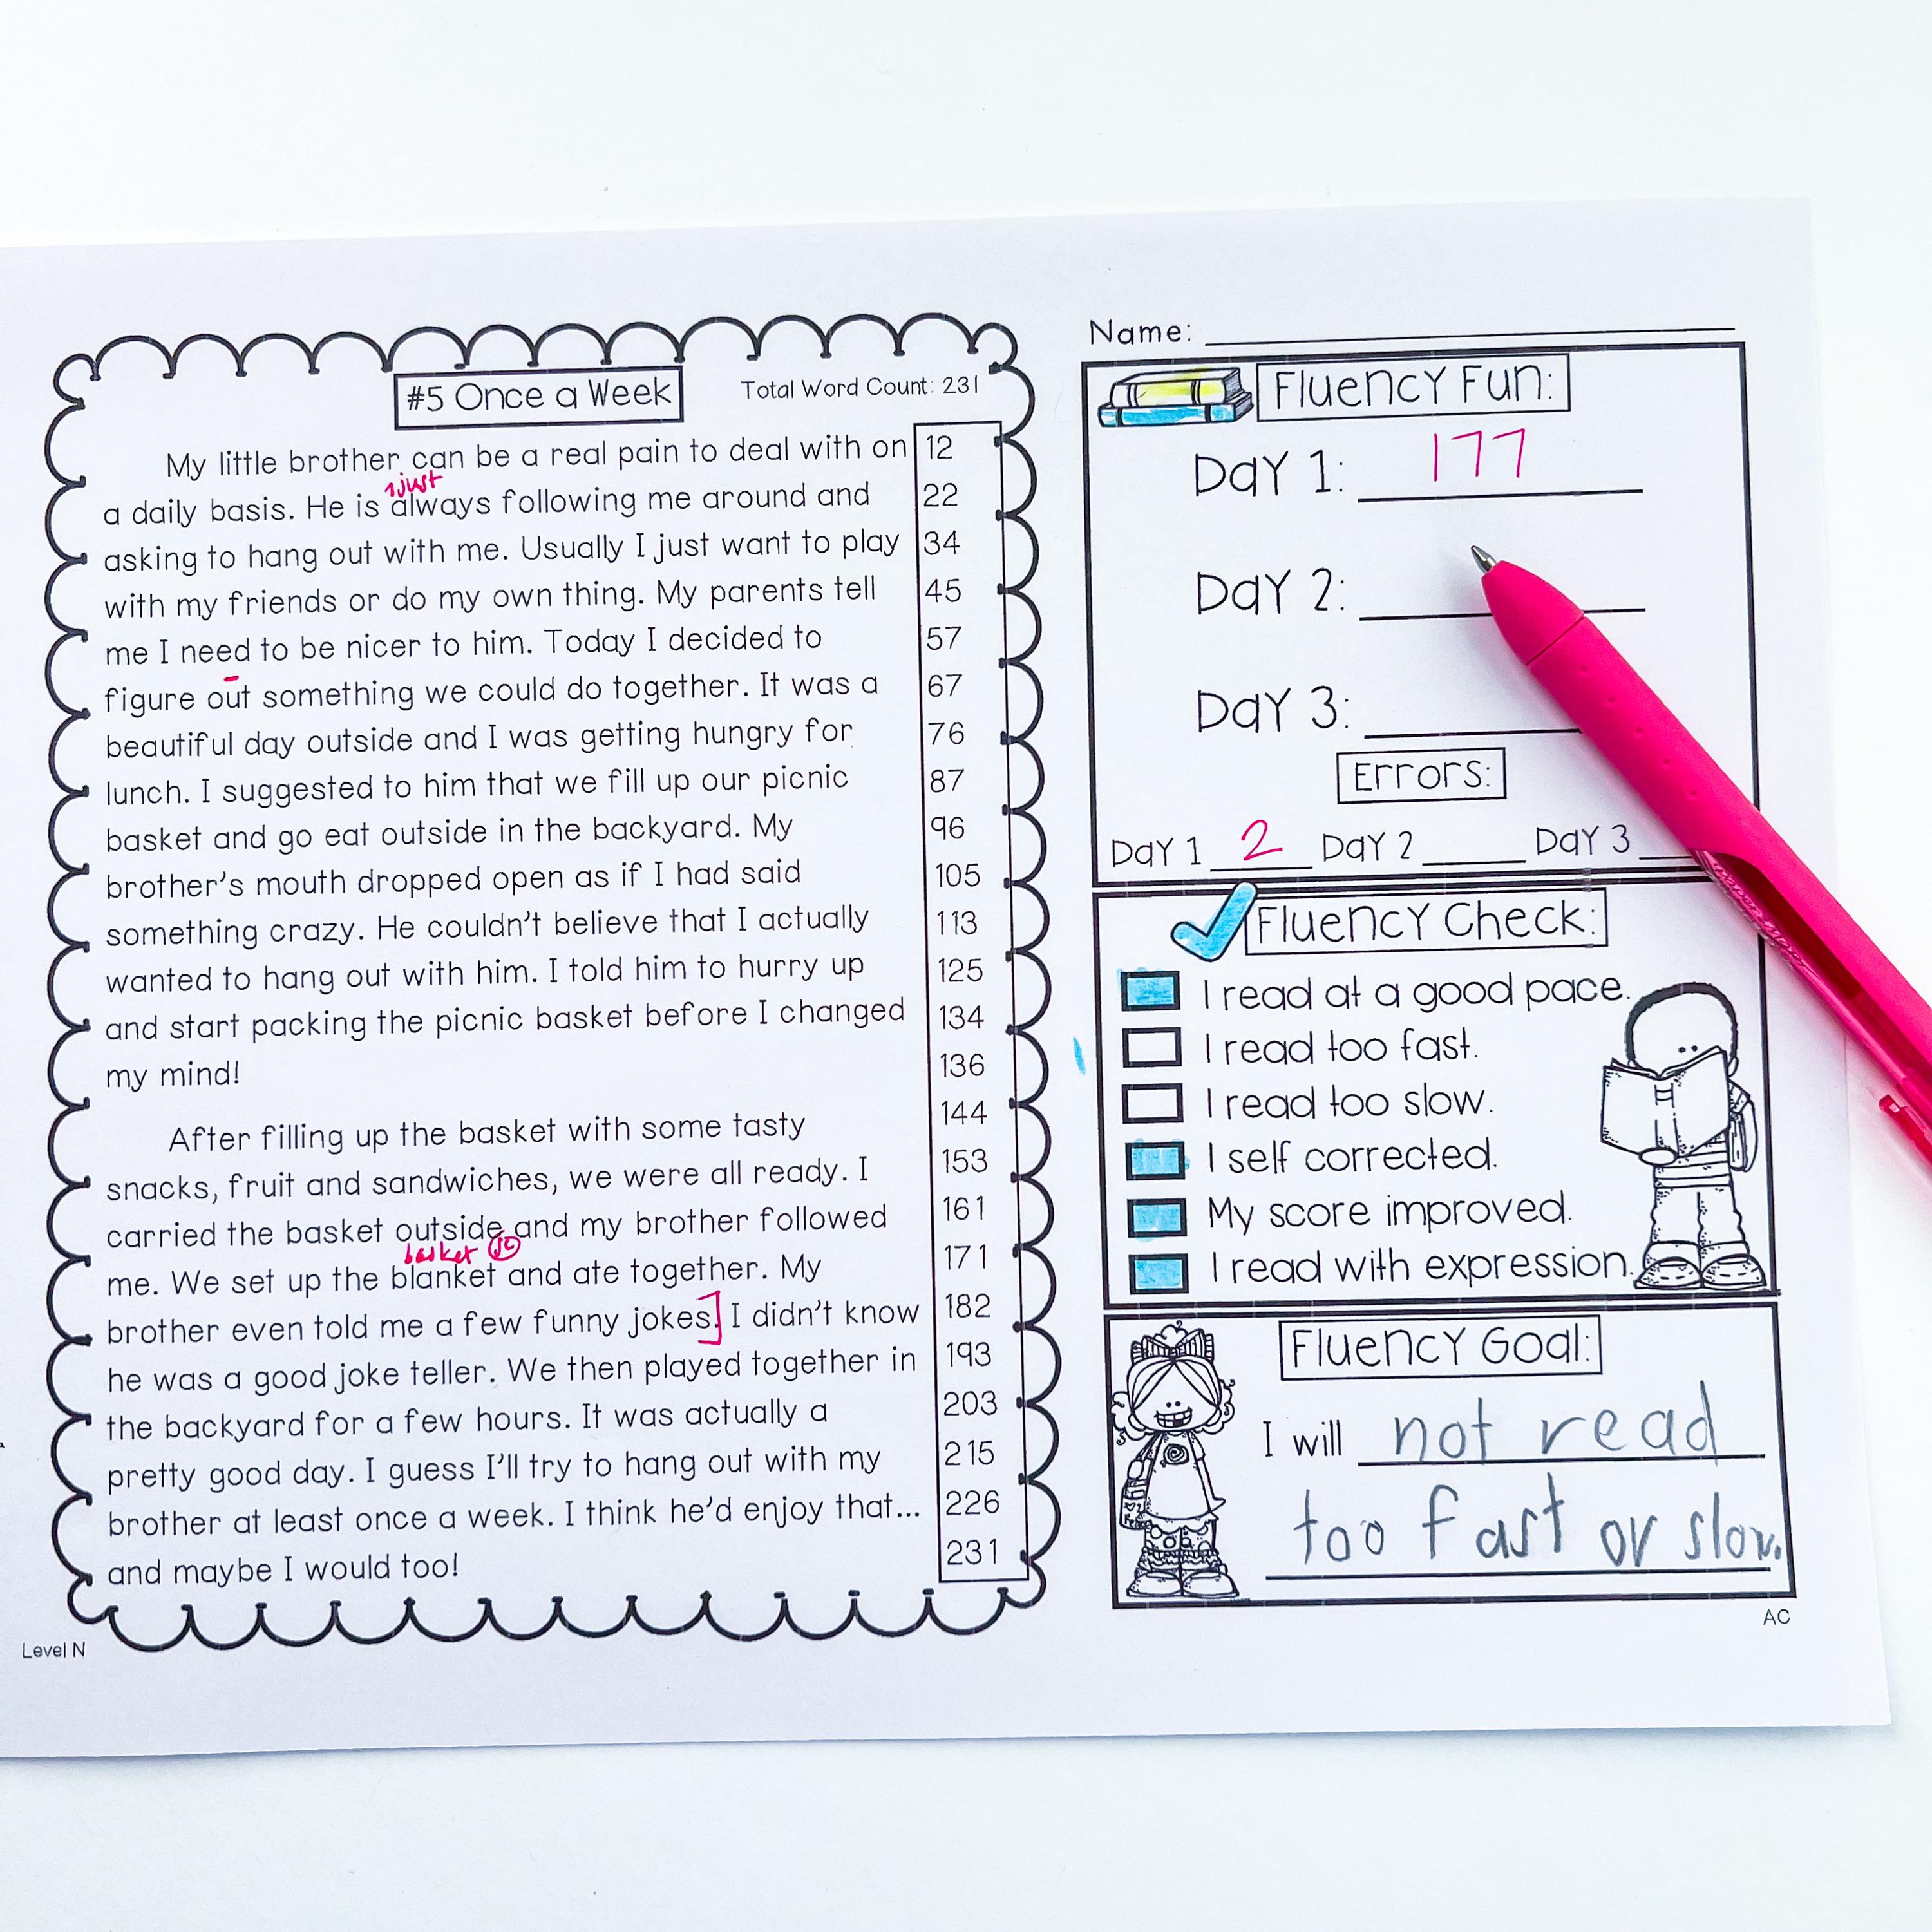 #5 Once a Week
Total Word Count: 231
My little brother can be a real pain to deal with on 12
just
a daily basis. He is always following me around and 22
asking to hang out with me. Usually I just want to play 34
with my friends or do my own thing. My parents tell 45
me I need to be nicer to him. Today I decided to 57
figure out something we could do together. It was a 67
beautiful day outside and I was getting hungry for 76
lunch. I suggested to him that we fill up our picnic 87
basket and go eat outside in the backyard. My 96
brother's mouth dropped open as if I had said 105
something crazy. He couldn't believe that I actually 113
wanted to hang out with him. I told him to hurry up 125
and start packing the picnic basket before I changed 134
my mind! 136
After filling up the basket with some tasty 144
snacks, fruit and sandwiches, we were all ready. I 153
carried the basket outside and my brother followed 161
basket sc
me. We set up the blanket and ate together. My 171
brother even told me a few funny jokes.] I didn't know 182
he was a good joke teller. We then played together in 193
the backyard for a few hours. It was actually a 203
pretty good day. I guess I'll try to hang out with my 215
brother at least once a week. I think he'd enjoy that... 226
and maybe I would too! 231
Level N
Name:
Fluency Fun:
Day 1: 177
Day 2:
Day 3:
Errors:
Day 1 2 Day 2 Day 3
Fluency Check:
I read at a good pace.
I read too fast.
I read too slow.
I self corrected.
My score improved.
I read with expression.
Fluency Goal:
I will not read
too fast or slow.
AC